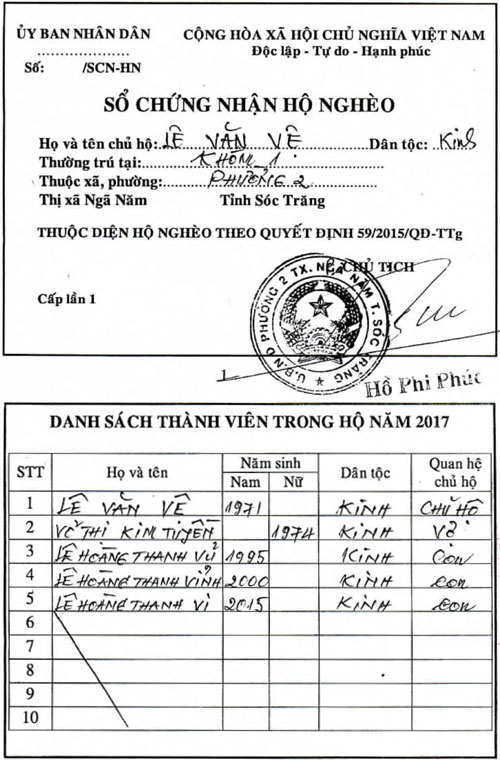 ỦY BAN NHÂN DÂN
CỘNG HÒA XÃ HỘI CHỦ NGHĨA VIỆT NAM
Độc lập - Tự do - Hạnh phúc
Số: /SCN-HN
SỔ CHỨNG NHẬN HỘ NGHÈO
Họ và tên chủ hộ: LÊ VĂN VÊ Dân tộc: Kinh
Thường trú tại: KHÓM 1
Thuộc xã, phường: PHƯỜNG 2
Thị xã Ngã Năm Tỉnh Sóc Trăng
THUỘC DIỆN HỘ NGHÈO THEO QUYẾT ĐỊNH 59/2015/QĐ-TTg
CHỦ TỊCH
Cấp lần 1
U.B.N.D PHƯỜNG 2 TX. NGÃ NĂM T. SÓC TRĂNG
Hồ Phi Phúc
DANH SÁCH THÀNH VIÊN TRONG HỘ NĂM 2017
STT Họ và tên Năm sinh Dân tộc Quan hệ chủ hộ
Nam Nữ
1 LÊ VĂN VÊ 1971 KINH CHỦ HỘ
2 VÕ THỊ KIM TUYỀN 1974 KINH VỢ
3 LÊ HOÀNG THANH VŨ 1995 KINH CON
4 LÊ HOÀNG THANH VĨNH 2000 KINH CON
5 LÊ HOÀNG THANH VI 2015 KINH CON
6
7
8
9
10